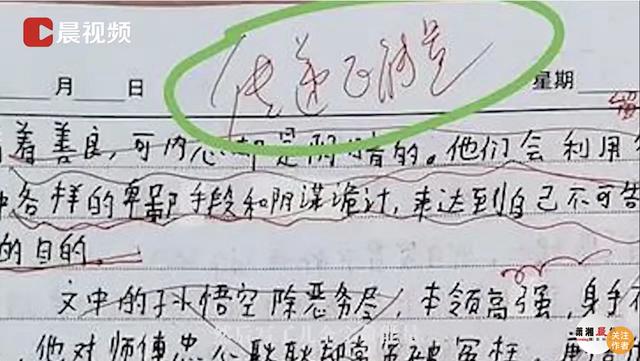 晨视频
月 日 传递正能量 星期
着善良，可内心却是阴暗的。他们会利用
各样的卑鄙手段和阴谋诡计，来达到自己不可告
的目的。
文中的孙悟空除恶务尽，本领高强，身手
他对师傅忠心耿耿却常常被冤枉
潇湘晨
关注
作者